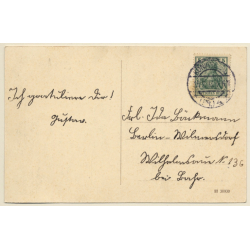 Ich gratuliere dir!
Gustav.
Frl. Ida Brückmann
Berlin-Wilmersdorf
Wilhelmsaue N. 136
bei Bahr.